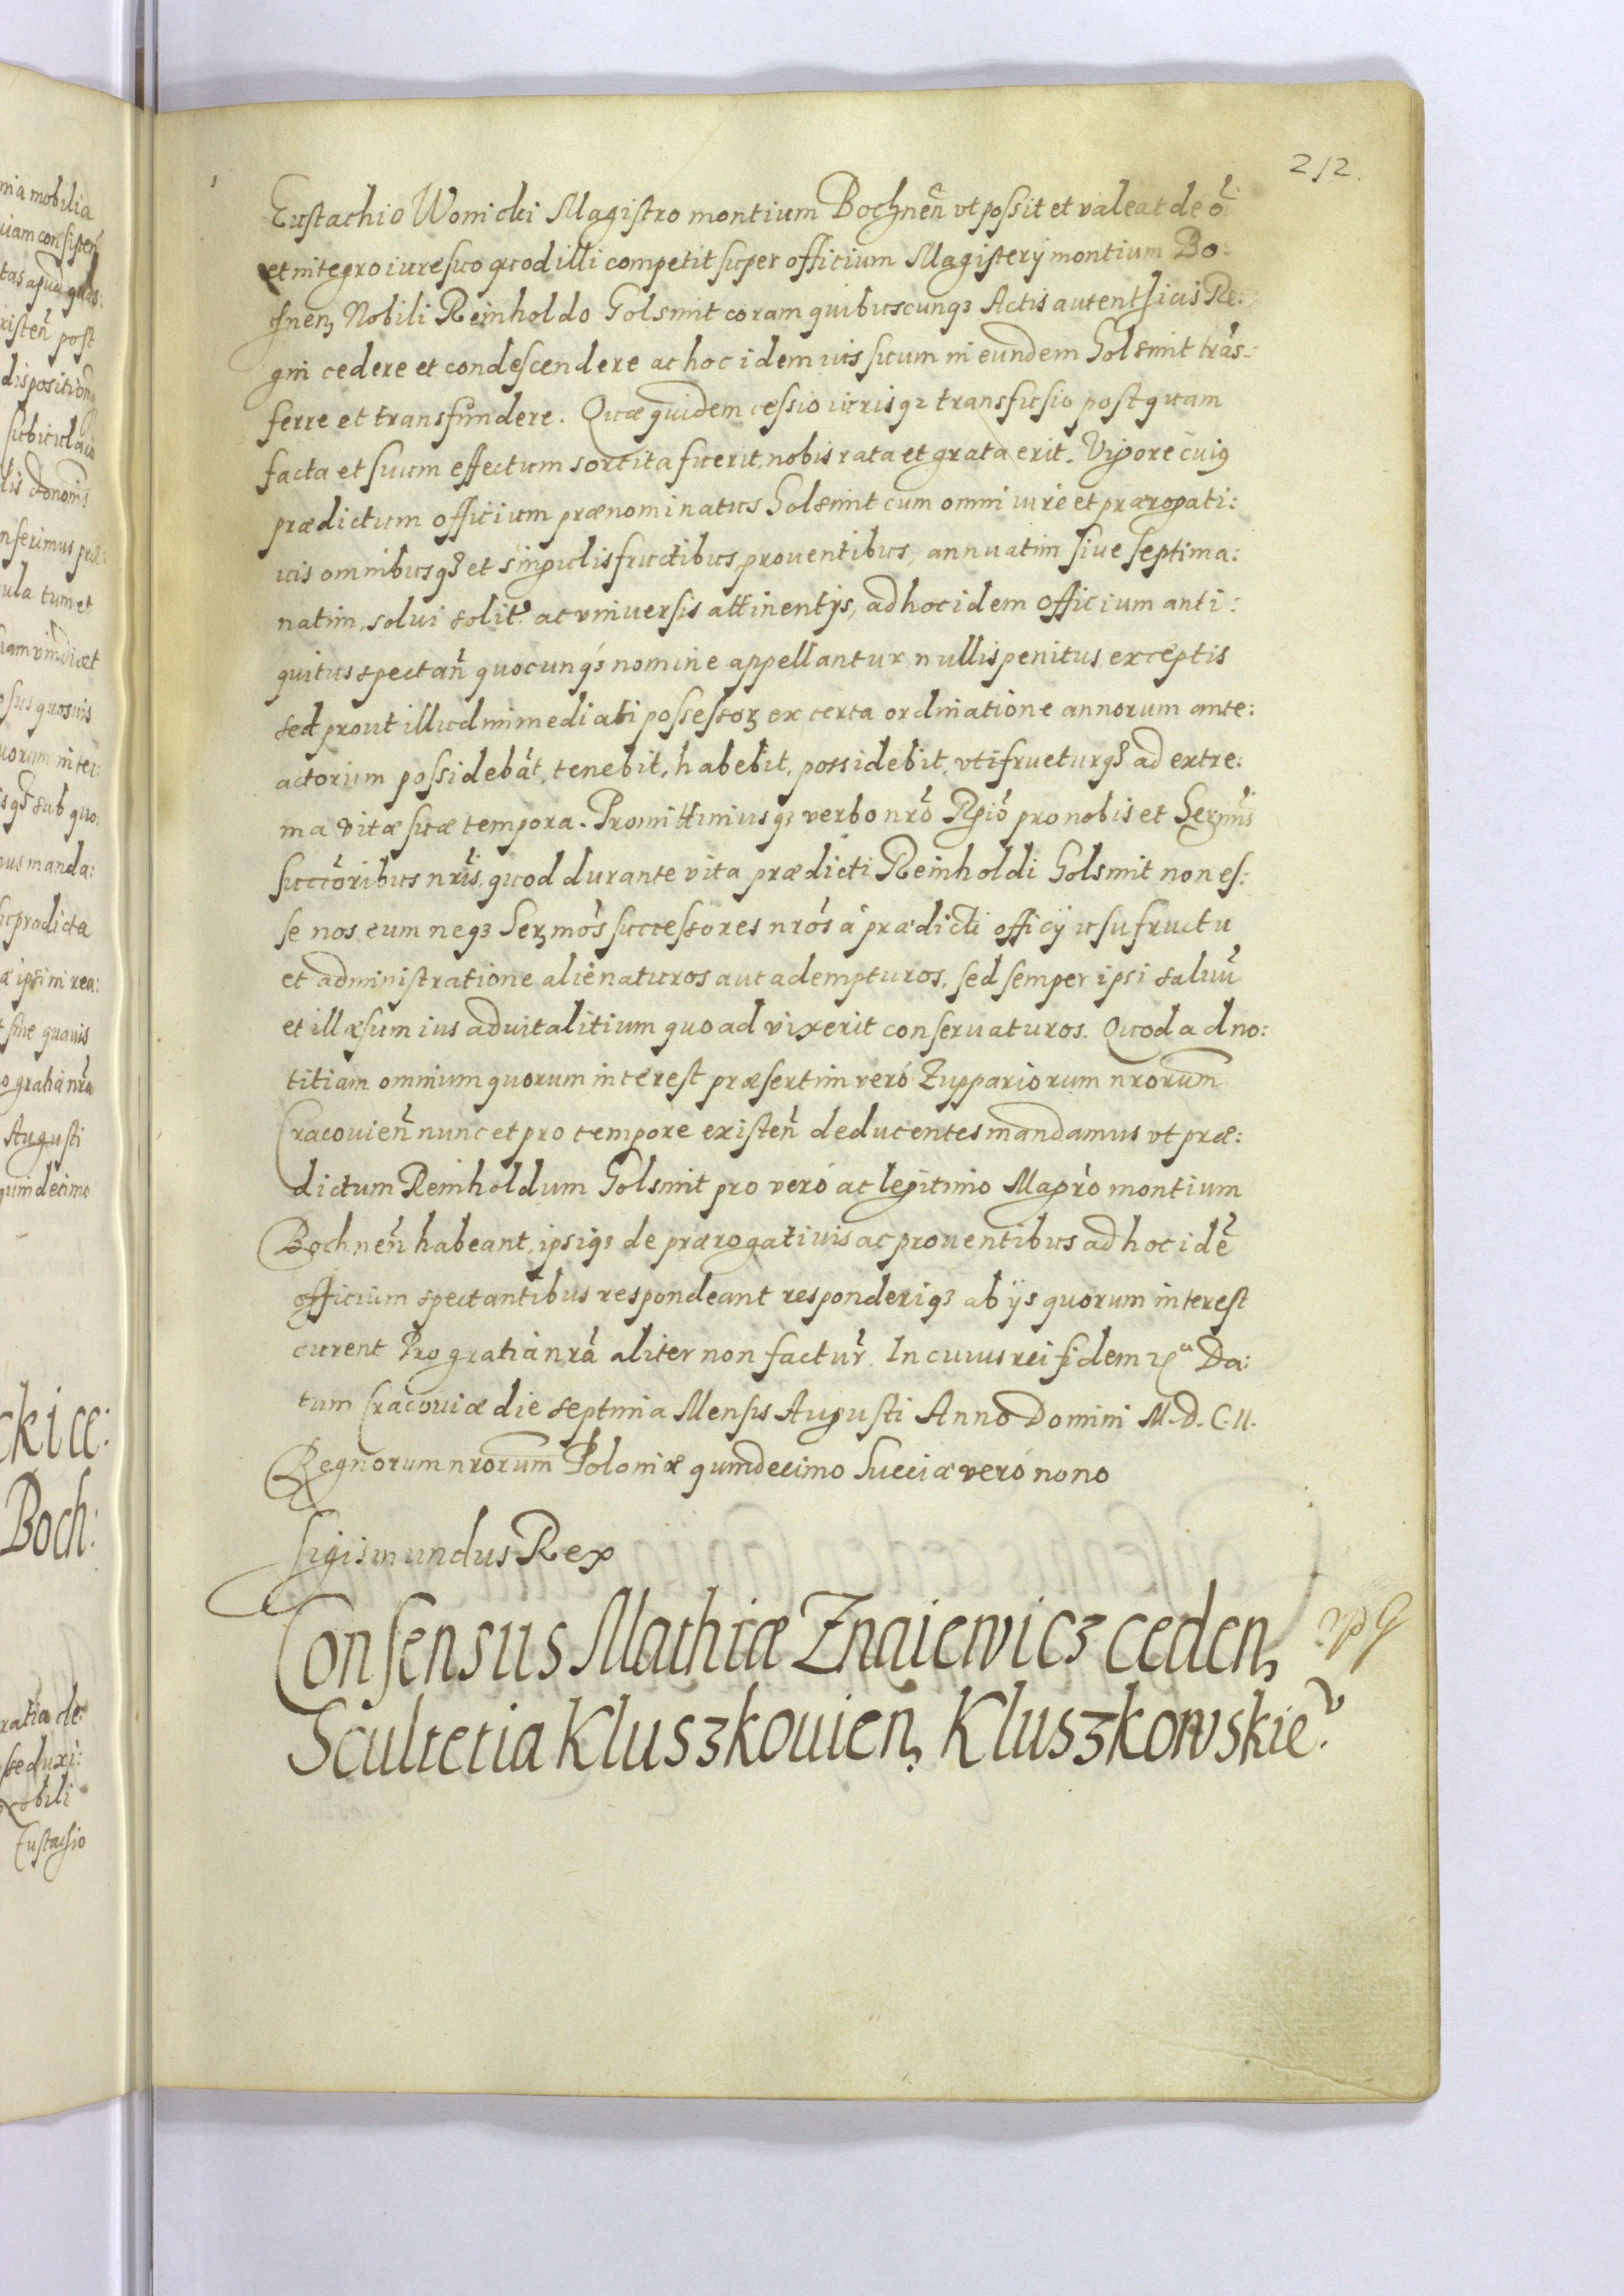 212.
Eustachio Wonicki Magistro montium Bochneñ vt possit et valeat de oi
et integro iure suo quod illi competit super officium Magisterÿ montium Bo:
chneñ, Nobili Reinholdo Golsmit coram quibuscunqꝫ Actis autenthicis Re:
gni cedere et condescendere ac hoc idem ius suum in eundem Golsmit trãs-
ferre et transfundere. Quæ quidem cessio iurisqꝫ transfusio postquam
facta et suum effectum sortita fuerit, nobis rata et grata erit. Vigore cuiꝰ
prædictum officium prænominatus Golsmit cum omni iure et prærogati:
uis omnibusqꝫ et singulis fructibus, prouentibus, annuatim siue septima:
natim, solui solit. ac vniuersis attinentÿs, ad hoc idem officium anti:
quitus spectañ quocunqꝫ nomine appellantur, nullis penitus exceptis
sed prout illud immediati possessoꝫ ex certa ordinatione annorum ante:
actorum possidebãt, tenebit, habebit, possidebit, vtifrueturqꝫ ad extre:
ma vitæ suæ tempora. Promittimusqꝫ verbo nrõ Regiõ pro nobis et Serꝫmis
succõribus nrĩs, quod durante vita prædicti Reinholdi Golsmit non es:
se nos eum neqꝫ Serꝫmos successores nrõs à prædicti officÿ usufructu
et administratione alienaturos aut adempturos, sed semper ipsi saluũ
et illæsum ius aduitalitium quoad vixerit conseruaturos. Quod ad no:
titiam omnium quorum interest præsertim veró Zuppariorum nrorum
Cracouieñ nunc et pro tempore existeñ deducentes mandamus vt præ:
dictum Reinholdum Golsmit pro veró ac legitimo Magrõ montium
Bochneñ habeant, ipsiqꝫ de prærogatiuis ac prouentibus ad hoc idẽ
officium spectantibus respondeant responderiqꝫ ab ÿs quorum interest
curent Pro gratia nrã aliter non factur̃. In cuius rei fidem Da:
tum Cracouiæ die septima Mensis Augusti Anno Domini M.D.C.II.
Regnorum nrorum Poloniæ quindecimo Sueciæ veró nono
Sigismundus Rex
Consensus Mathiæ Znaiewicz ceden,
Scultetia Kluszkouien, Kluszkowskie.